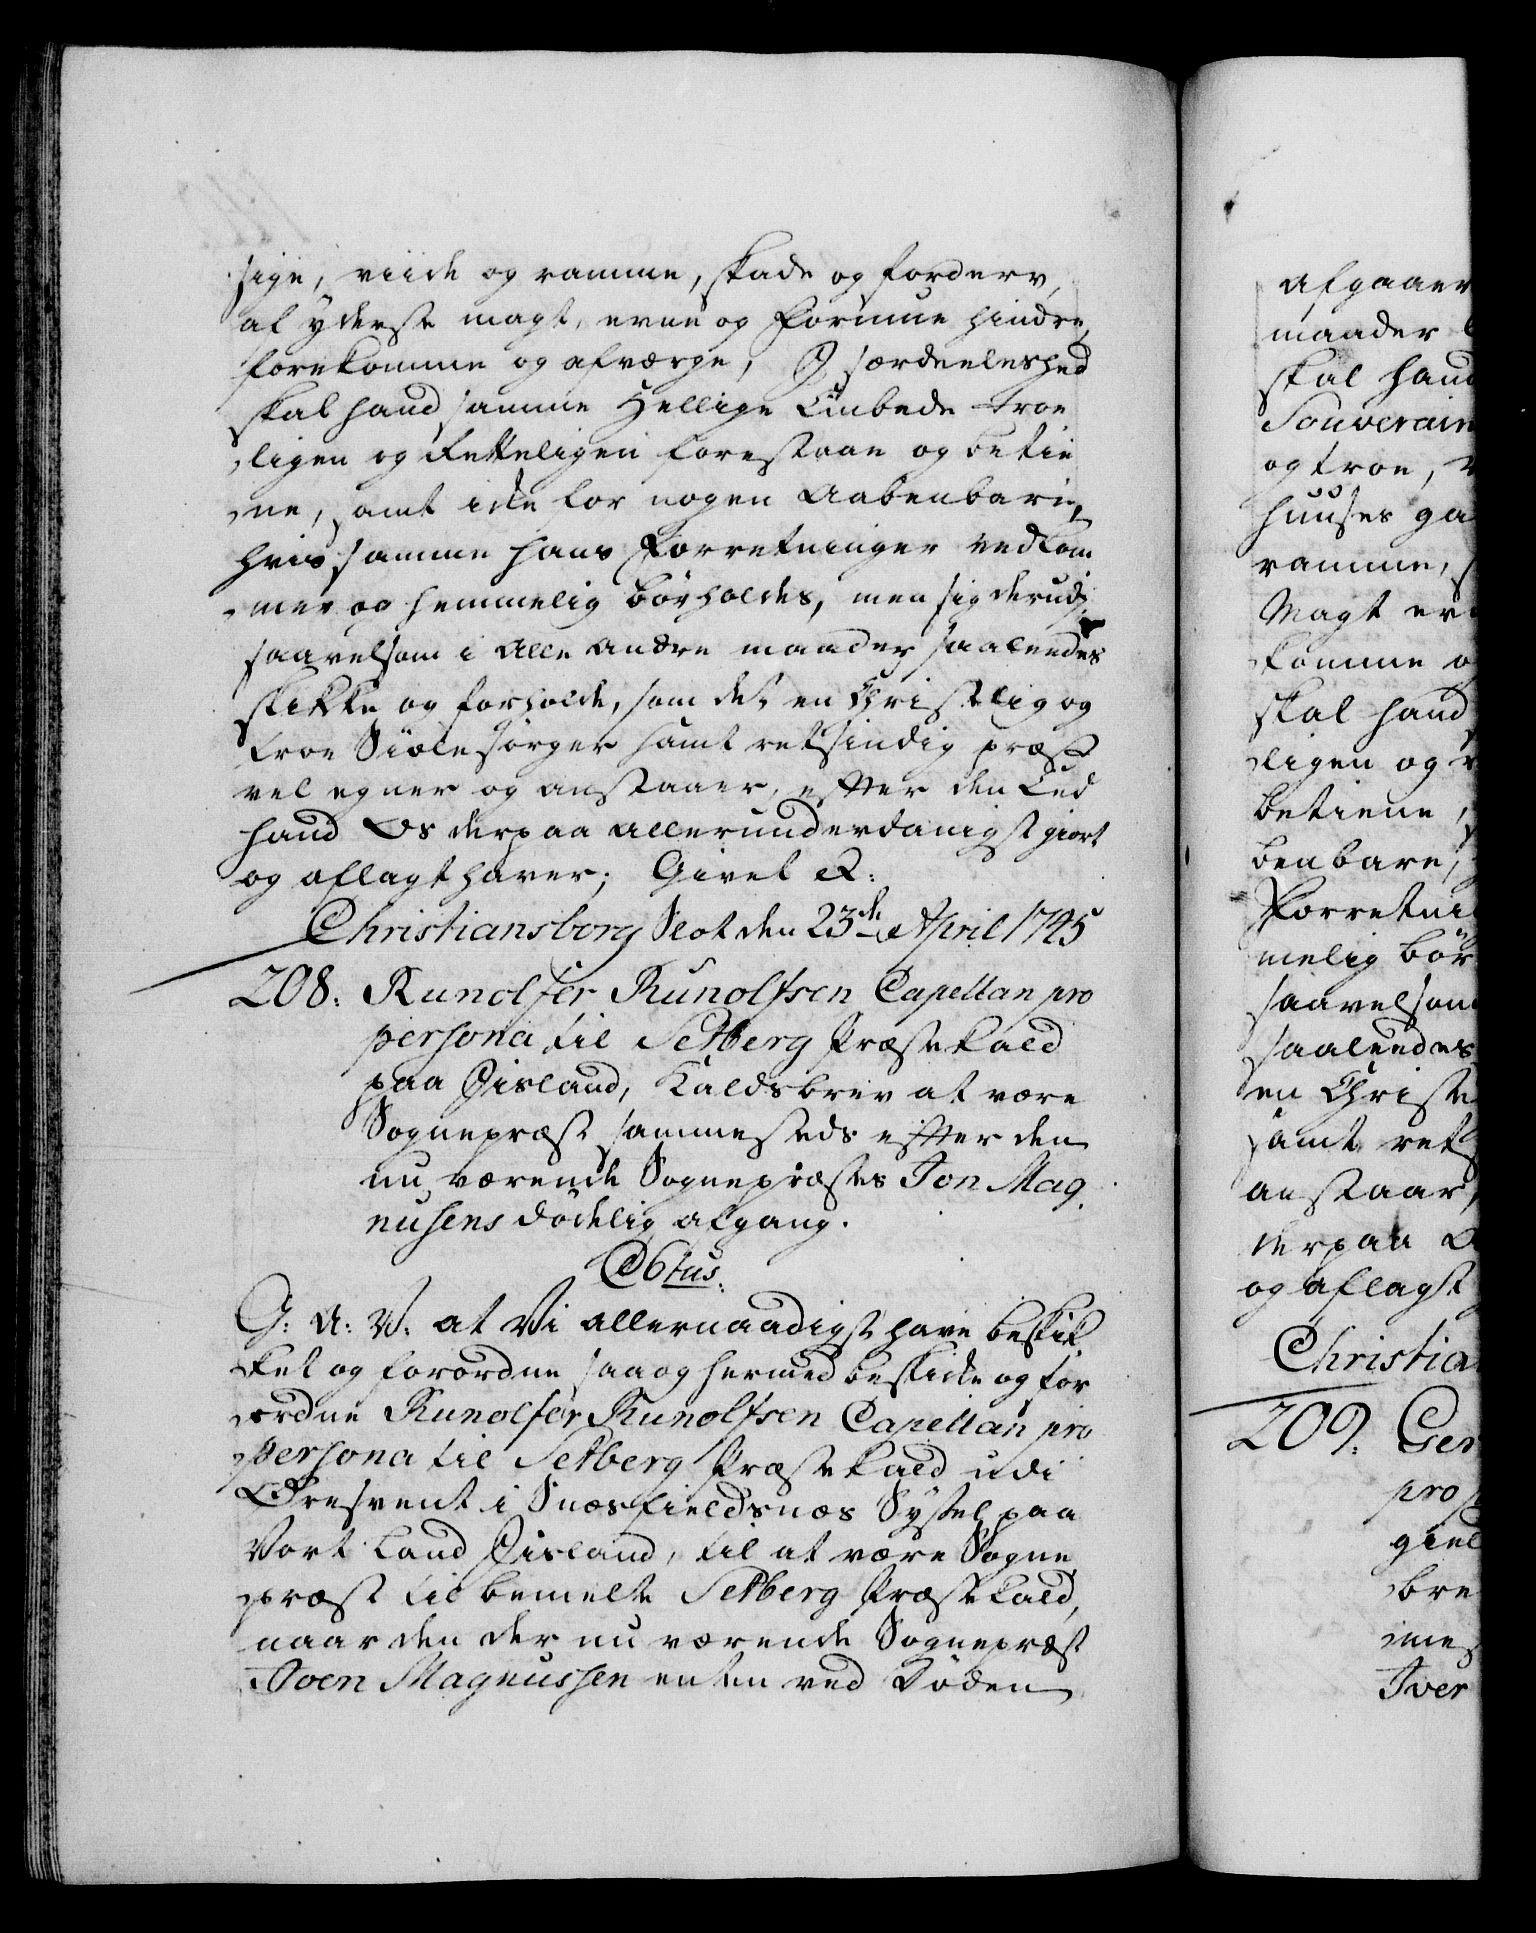 sige, viide og ramme, skade og forderv,
af yderste magt, evne og formue hindre,
forekomme og afværge, I særdeeleshed
skal hand samme Hellige Embede troe
ligen og Retteligen forestaae og betie
ne, samt icke for nogen Aabenbare,
hvis samme hans Forretninger vedkom
mer og hemmelig bör holdes, men sig derudj
saavelsom i alle andre maader saaledes
skikke og forholde, som det en Christelig og
troe Siælesörger samt retsindig præst
vel egner og anstaaer, efter den Eed
hand Os derpaa allerunderdanigst giort
og aflagt haver; Givet &:
Christiansborg Slot den 23de April 1745
208. Runolfer Runolfsen Capellan pro
persona til Setberg Præste Kald
paa Iisland, Kaldsbrev at være
Sognepræst sammesteds efter den
nu værende Sognepræstes Jon Mag
nusens dödelig afgang.
C6tus.
G: A: V: at Vi allernaadigst have beskik
ket og forordne saa og hermed beskicke og for
ordne Runolfer Runolfsen Capellan pro
persona til Setberg Præste Kald udi
i Snæsfieldsnæs Syssel paa
Vort Land Iisland, til at være Sogne
præst til bemelte Setberg Præste Kald,
naar den der nu værende Sognepræst
Joen Magnussen enten ved Döden
afgaaer
maader
skal hand
Souverain
og troe,
huuses ga
ramme,
Magt ev
komme o
skal hand
ligen og
betiene,
benbare,
Forretni
melig bör
saavelsom
saaledes
en Christe
samt rets
anstaar,
derpaa
og aflagt
Christia
209. Ger
pro
giel
bre
mes
Iver